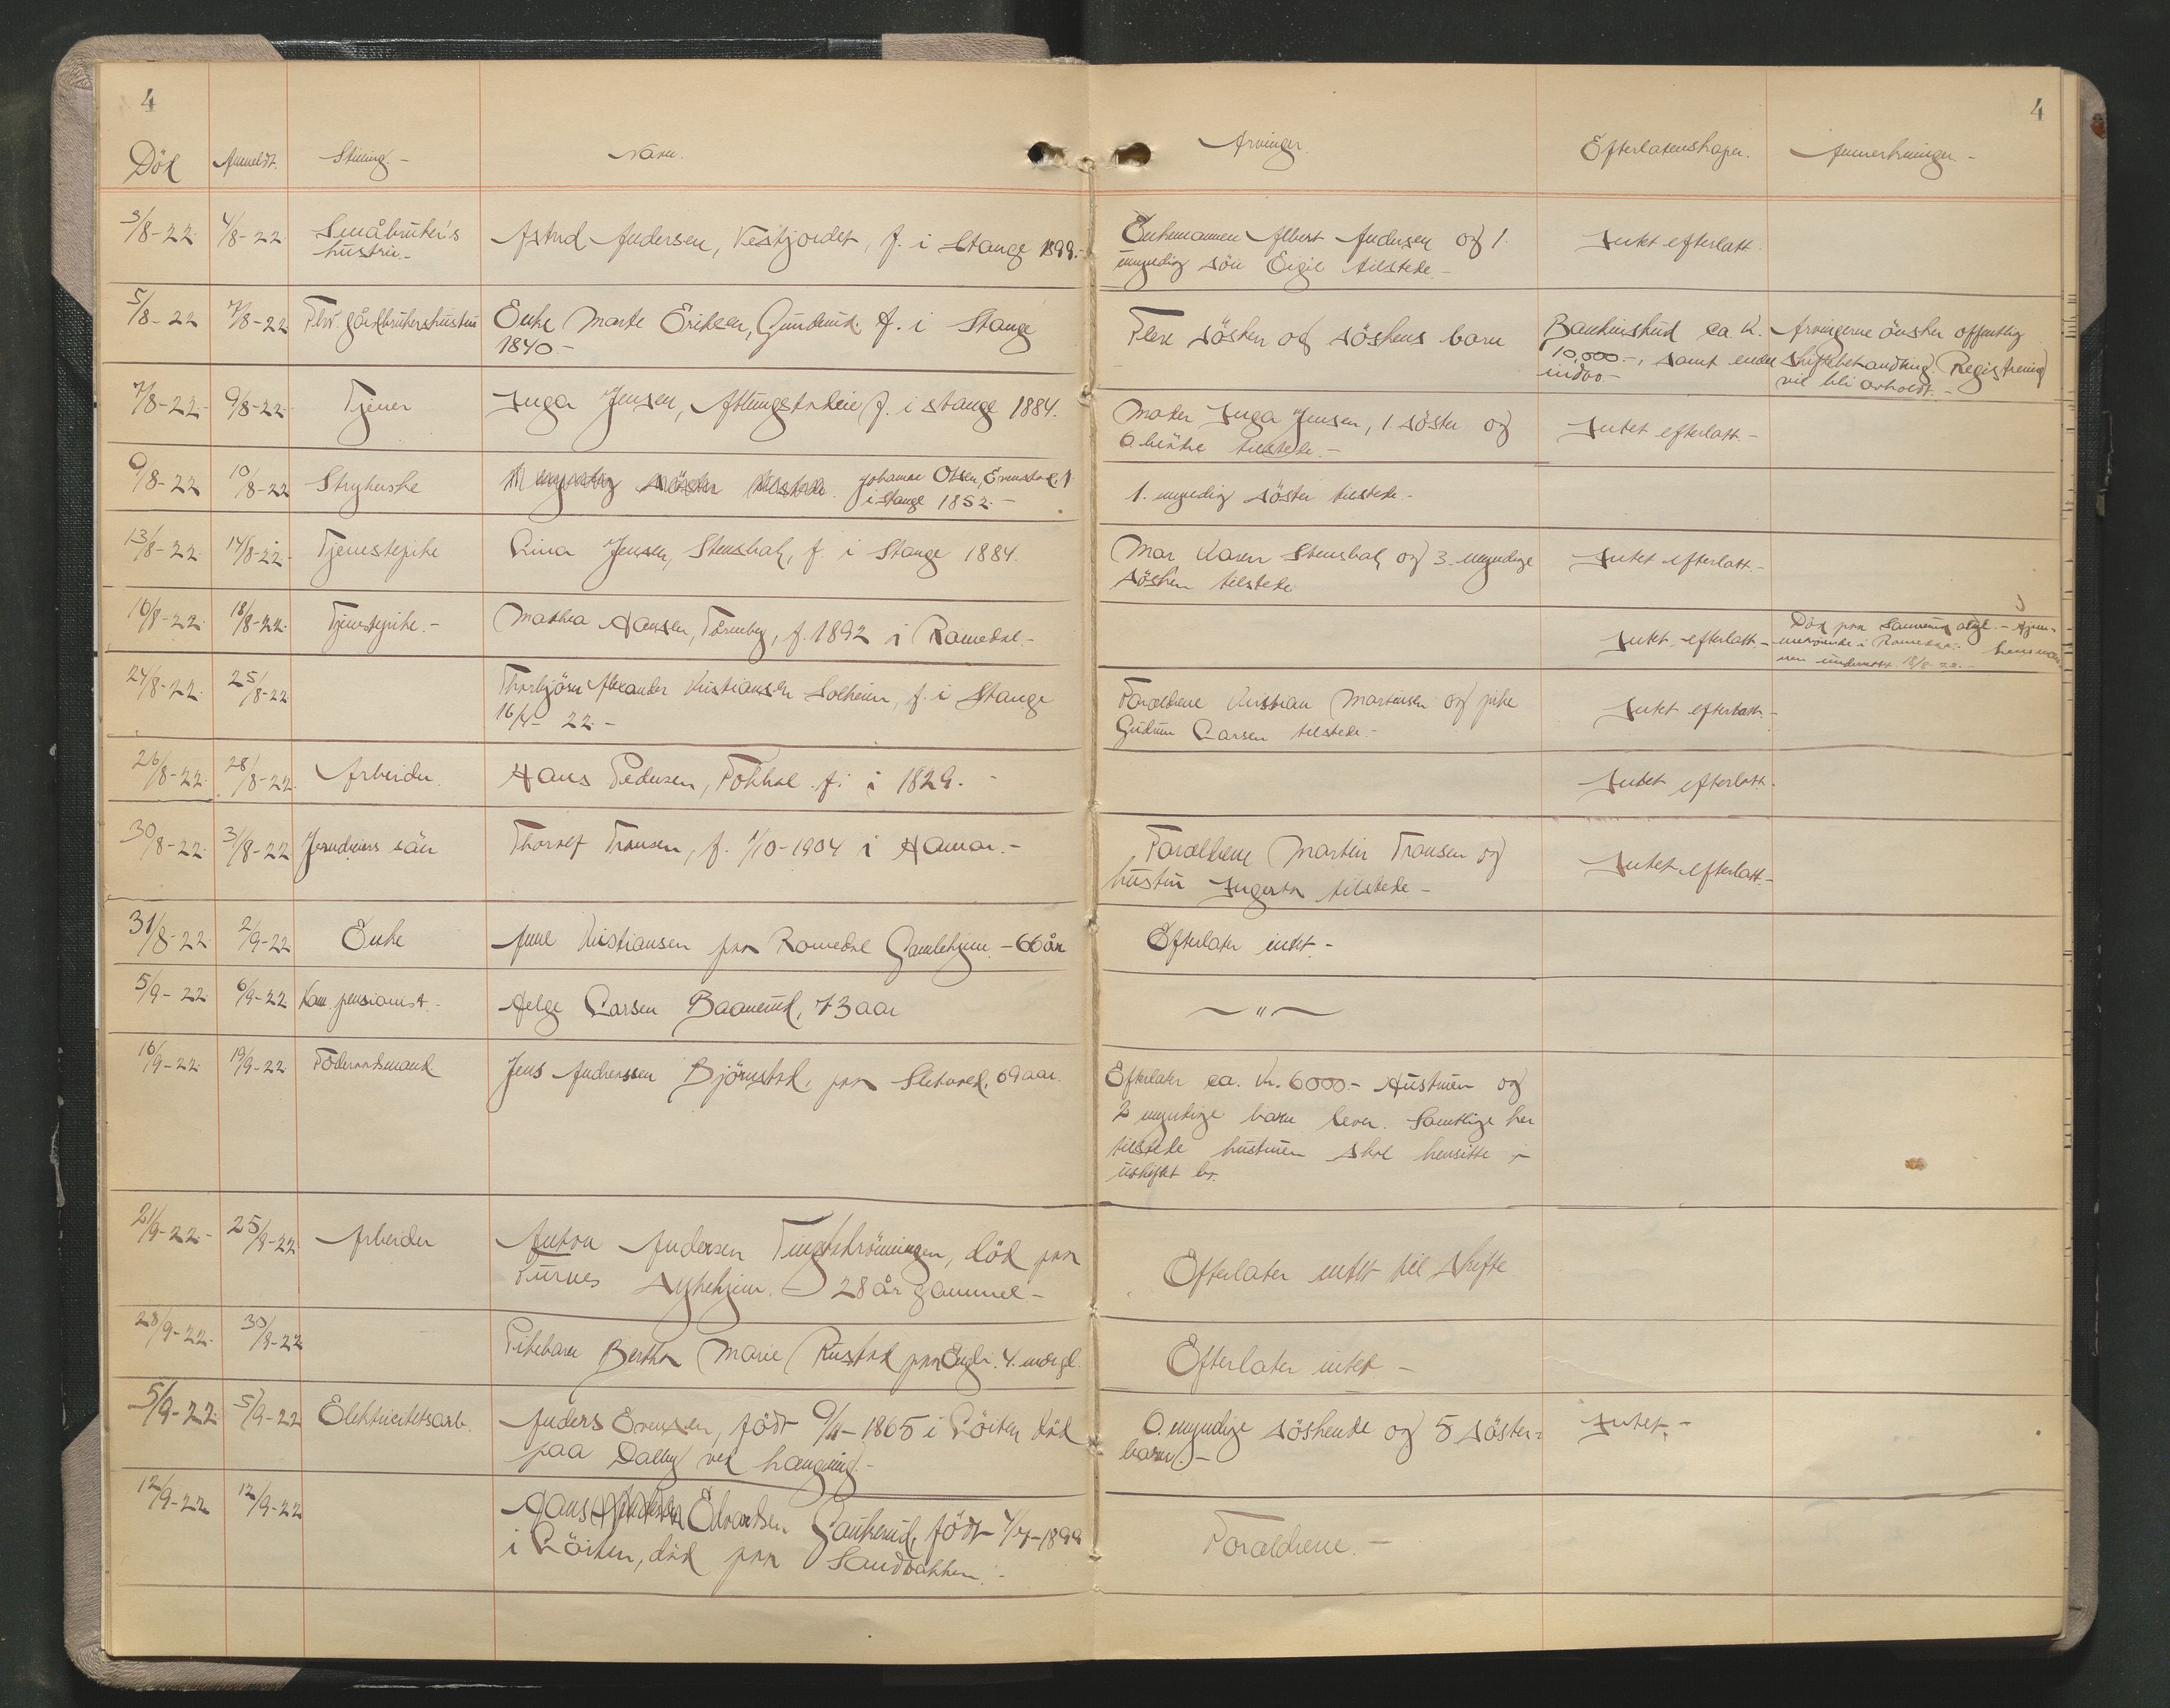 4
4
Död Anmeldt. Stilling.- Navn. Arvinger. Efterladenskaper. Anmerkninger.-
3/8-22 4/8-22 Småbruker's
hustru.-
Astrid Andersen, Vestjordet, f. i Stange 1899.-
Enkemannen Albert Andersen og 1.
myndig sön Eigil tilstede.-
Intet efterlatt.
5/8-22 7/8-22 Fhv. gårdbrukerhustru
Enke Marte Eriksen, Gunderud. f. i Stange
1840-
Flere söskén og söskens barn
Bankinskud ca. K.
10,000.-, samt endel
indbo-
Arvingerne önsker offentlig
skiftebehandling. Registrering
vil bli avholdt.-
7/8-22- 9/8-22. Tjener
Inga Jensen, f. i Stange 1884.
Moder Inga Jensen, 1 söster og
6 brödre tilstede.-
Intet efterlatt.-
9/8-22 10/8-22 Strykerske
Johanne Olsen, Evenstad, f.
i Stange 1852.-
1. myndig söster tilstede.-
13/8-22. 14/8-22. Tjenestepike
Lina Jensen, Stensbak, f. i Stange 1884.
Mor Karen Stensbak og 3. myndige
sösken tilstede
Intet efterlatt.-
16/8-22. 18/8-22. Tjenestepike.-
Mathea Hansen, Törneby, f. 1892 i Romedal.-
Intet efterlatt.-
Död paa Sanderud asyl.- Hjem-
mehörende i Romedal. Lensman-
nen underrett 18/8-22.-
24/8-22. 25/8-22
Thorbjörn Alexander Kristiansen Solheim, f. i Stange
16/4-22.-
Foreldrene Kristian Martinsen og pike
Gudrun Larsen tilstede.-
Intet efterlatt.-
26/8-22. 28/8-22. Arbeider.
Hans Pedersen, Fokhol f. i 1829.-
Intet efterlatt.
30/8-22. 31/8-22 sön
Thoralf Tronsen, f. 1/10-1904 i Hamar.-
Foreldrene Martin Tronsen og
hustru Ingerta tilstede-
Intet efterlatt.-
31/8-22. 2/9-22 Enke
Anne Kristiansen paa Romedal Gamlehjem.-66 år
Efterlater intet.-
5/9-22 6/9-22 Kom. pensionist.-
Helge Larsen Baanerud, 73 aar
〜 " 〜
16/9-22. 19/9-22. Föderaadsmand
Jens Andreassen Björnstad, paa Sletvold, 69 aar.
Efterlater ca. Kr. 6000.- Hustruen og
2 myndige barn lever. Samtlige her
tilstede hustruen skal hensitte i
uskiftet bo.
21/9-22.- 25/9-22 Arbeider
Anton Andersen Tingstadrönningen, död paa
Furnes Sykehjem.- 28 år gammel-
Efterlater intet til skifte
28/9-22. 30/8-22
Pikebarn Berthe Marie Rustad paa Engli. 4. mdr gl.
Efterlater intet-
5/9-22. 5/9-22 Elektricitetsarb.
Anders Evensen, födt 9/11-1865 i Löiten död
paa Dalby ved hængning.-
6. myndige söskende og 5 söster-
barn.-
Intet.-
12/9-22 12/9-22
Hans Edvardsen Gaukerud, födt 4/7-1899
i Löiten, död paa Sandbakken.-
Foreldrene.-